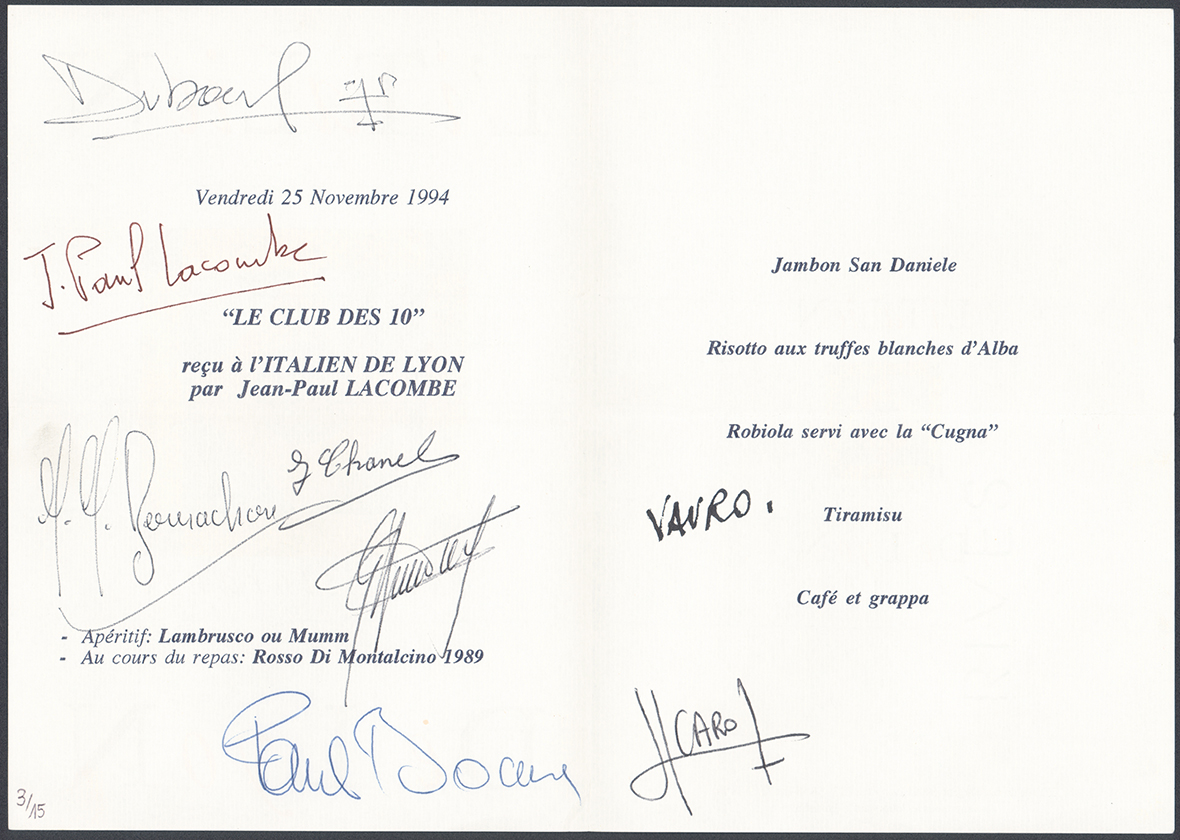 Duboeuf
Vendredi 25 Novembre 1994
J. Paul Lacombe
“LE CLUB DES 10”
reçu à l’ITALIEN DE LYON
par Jean-Paul LACOMBE
J Chanel
Bernachon
- Apéritif: Lambrusco ou Mumm
- Au cours du repas: Rosso Di Montalcino 1989
Paul Bocuse
3/15
Jambon San Daniele
Risotto aux truffes blanches d’Alba
Robiola servi avec la “Cugna”
VAVRO.
Tiramisu
Café et grappa
CARO